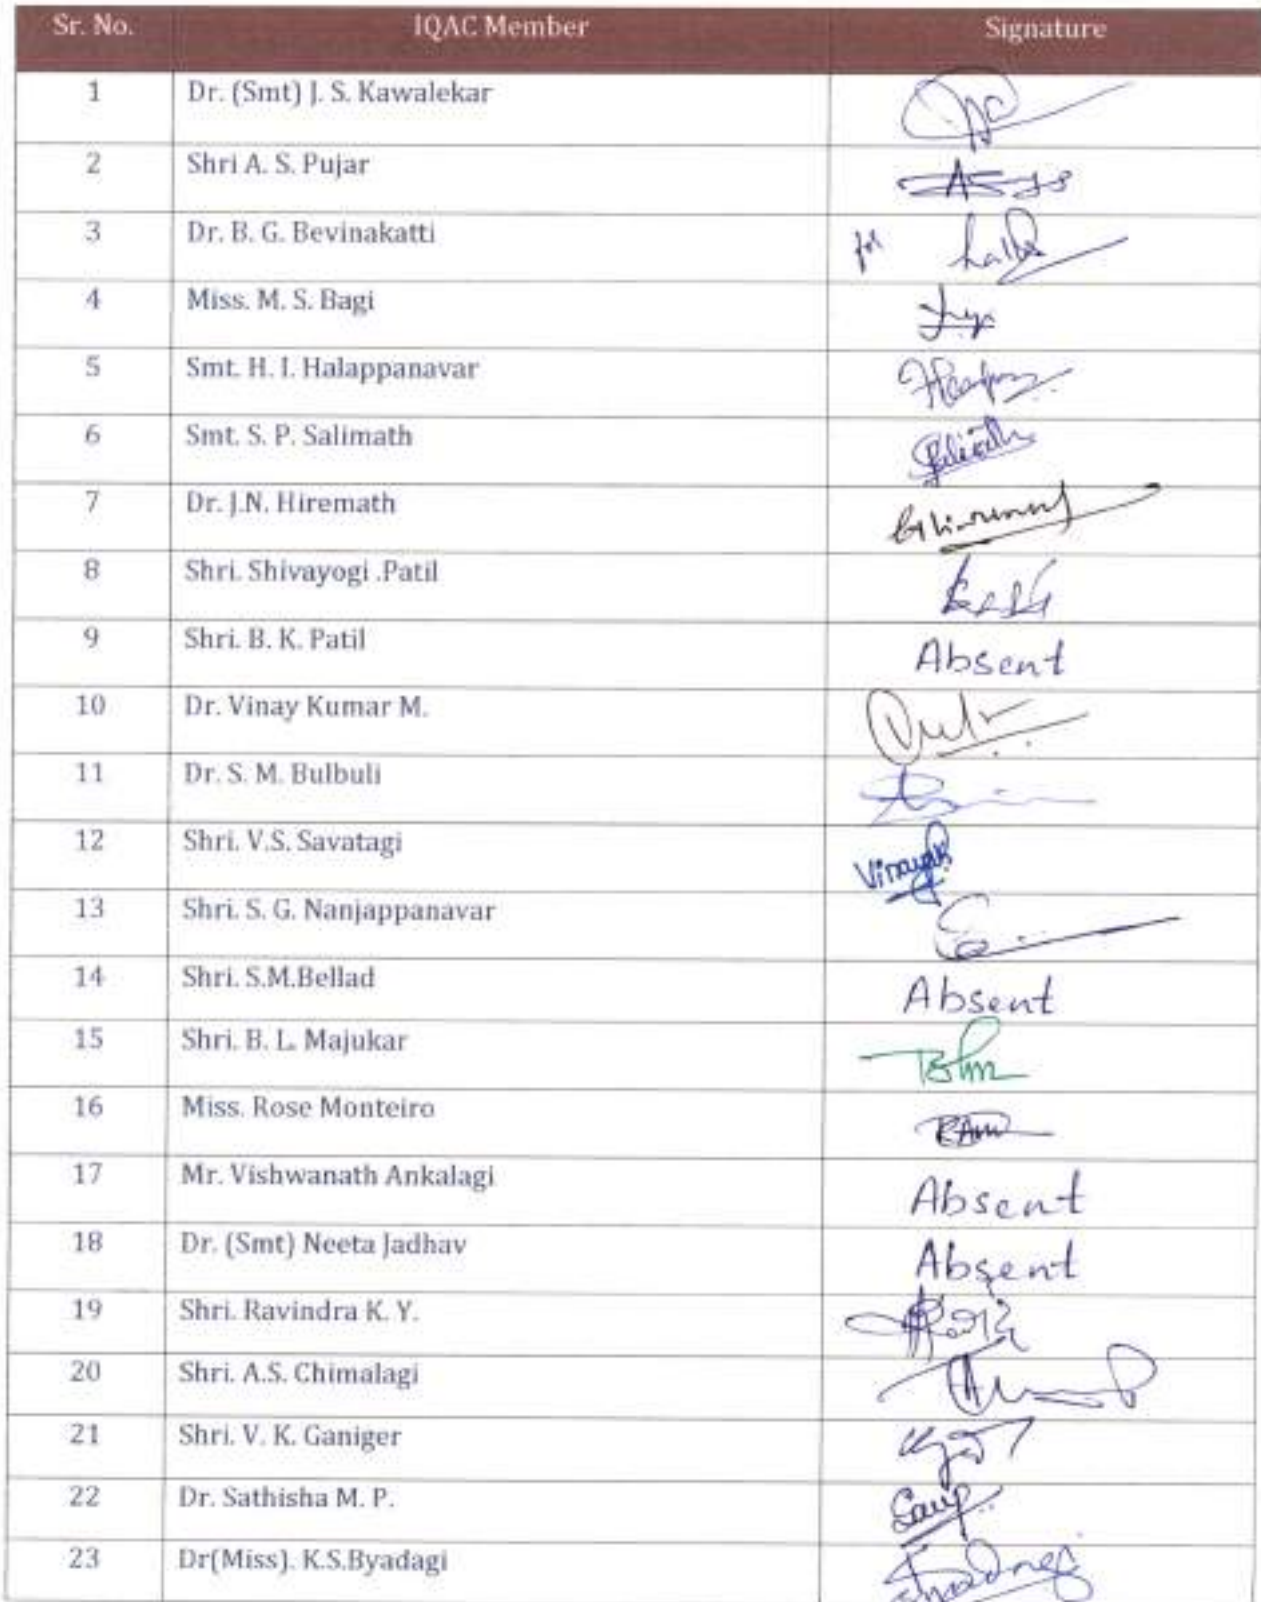 Sr. No. IQAC Member Signature
1 Dr. (Smt) J. S. Kawalekar
2 Shri A. S. Pujar
3 Dr. B. G. Bevinakatti for
4 Miss. M. S. Bagi
5 Smt. H. I. Halappanavar
6 Smt. S. P. Salimath
7 Dr. J.N. Hiremath
8 Shri. Shivayogi .Patil
9 Shri. B. K. Patil Absent
10 Dr. Vinay Kumar M.
11 Dr. S. M. Bulbuli
12 Shri. V.S. Savatagi Vinayak
13 Shri. S. G. Nanjappanavar
14 Shri. S.M.Bellad Absent
15 Shri. B. L. Majukar
16 Miss. Rose Monteiro
17 Mr. Vishwanath Ankalagi Absent
18 Dr. (Smt) Neeta Jadhav Absent
19 Shri. Ravindra K. Y.
20 Shri. A.S. Chimalagi
21 Shri. V. K. Ganiger
22 Dr. Sathisha M. P.
23 Dr(Miss). K.S.Byadagi